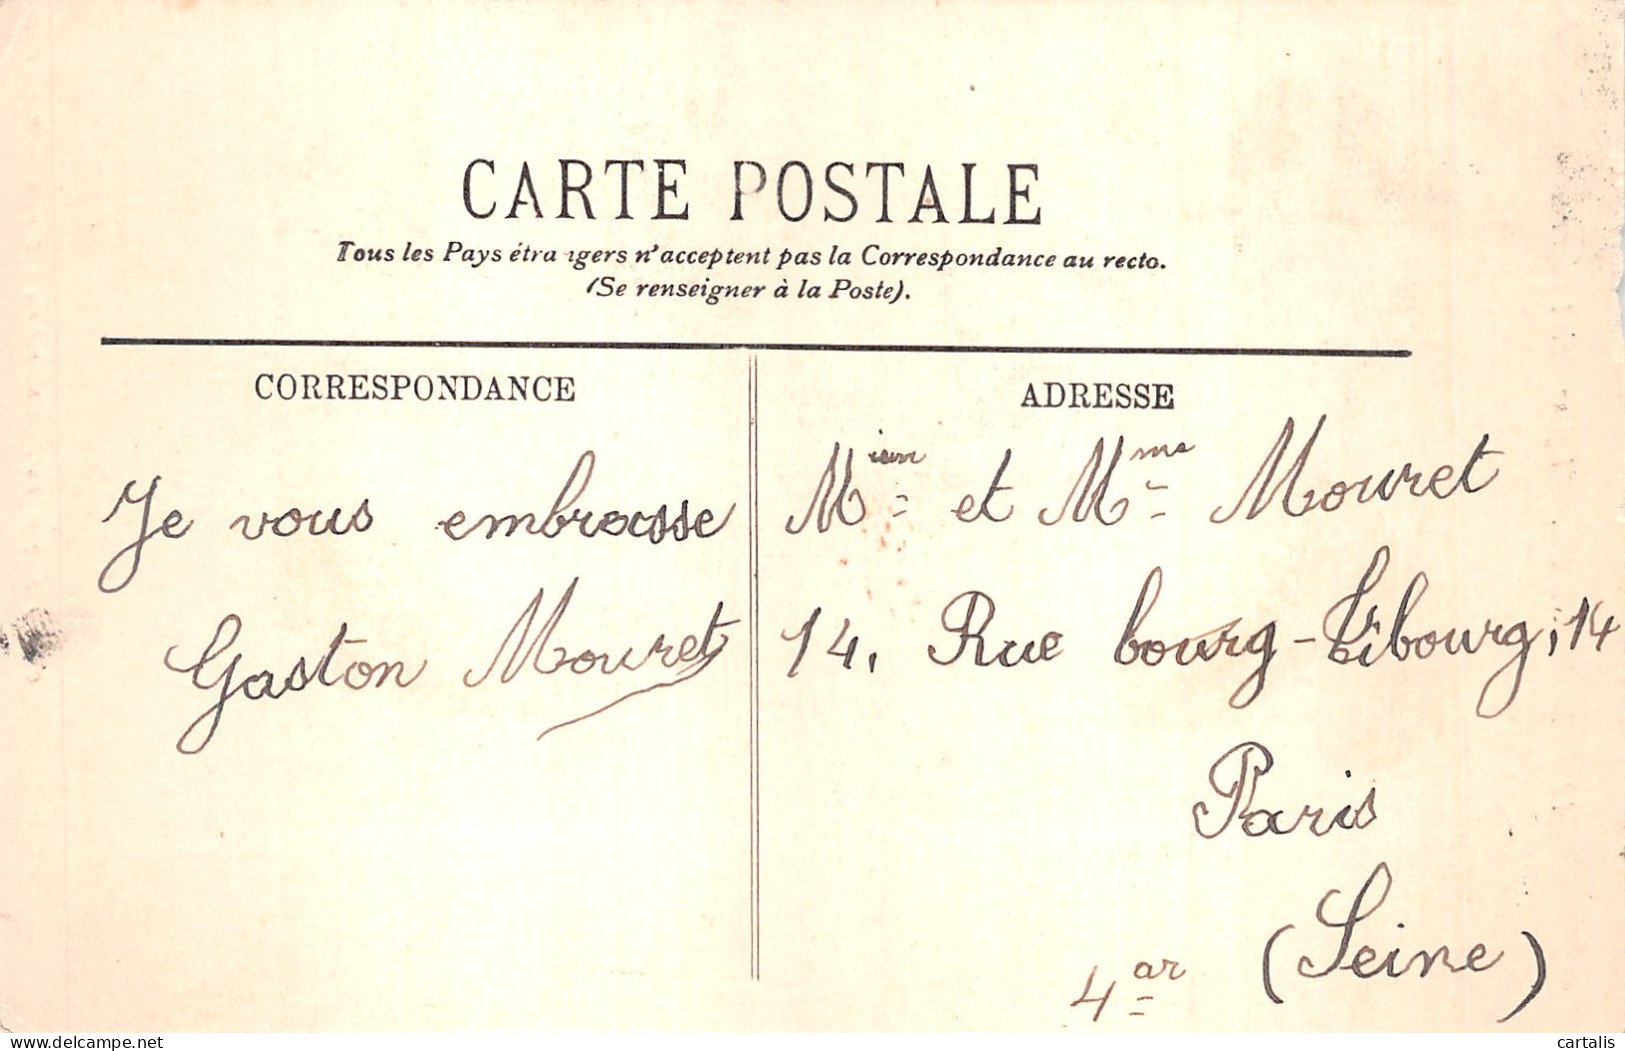 CARTE POSTALE
Tous les Pays étrangers n'acceptent pas la Correspondance au recto.
(Se renseigner à la Poste).
CORRESPONDANCE
Je vous embrasse
Gaston Mouret
ADRESSE
Mien et Mme Mouret
14, Rue bourg-Tibourg, 14
Paris
(Seine)
4ar
delcampe.net
cartalis